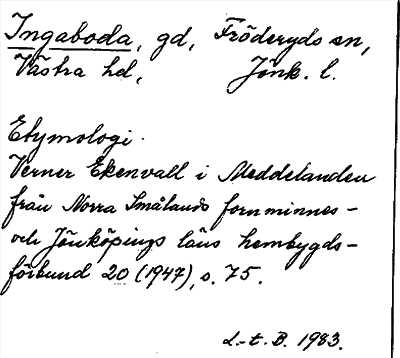 Ingaboda, gd, Fröderyds sn,
Västra hd, Jönk. l.
Etymologi.
Verner Ekenvall i Meddelanden
från Norra Smålands fornminnes-
och Jönköpings läns hembygds-
förbund 20 (1947), s. 75.
L-t. B. 1983.